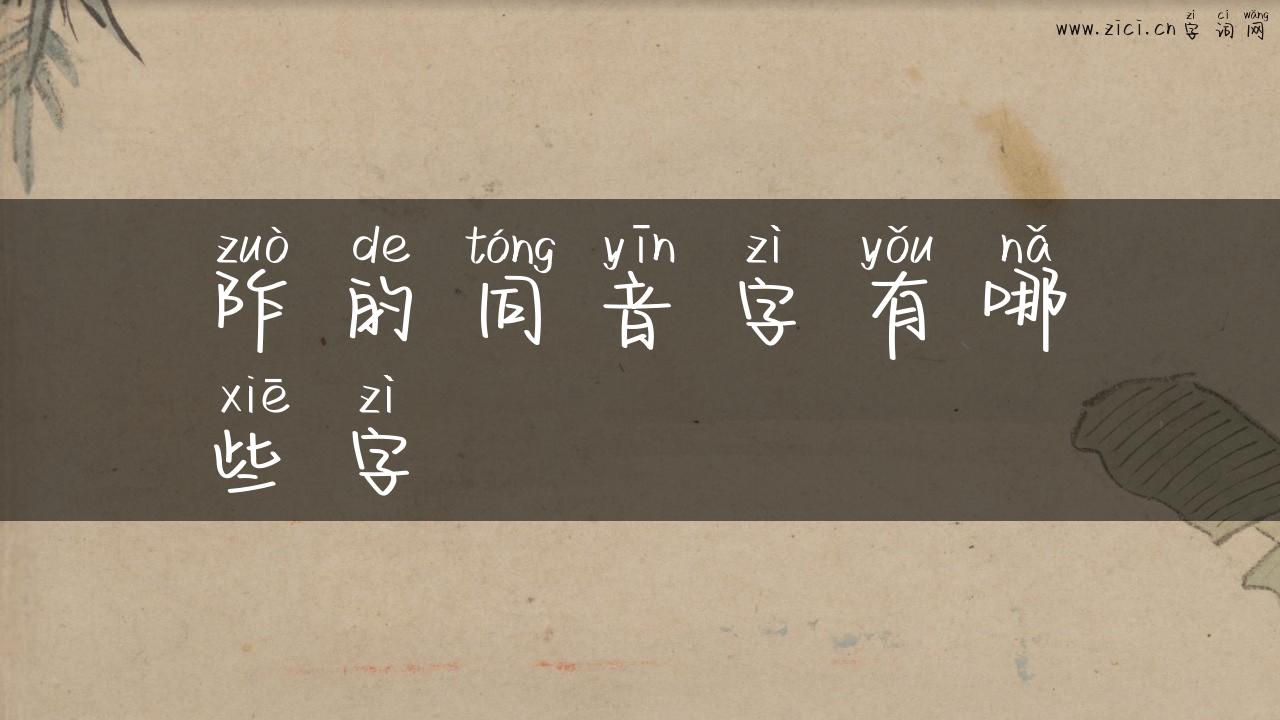 zì cí wǎng
www.zici.cn 字 词 网
zuò de tóng yīn zì yǒu nǎ
阼 的 同 音 字 有 哪
xiē zì
些 字